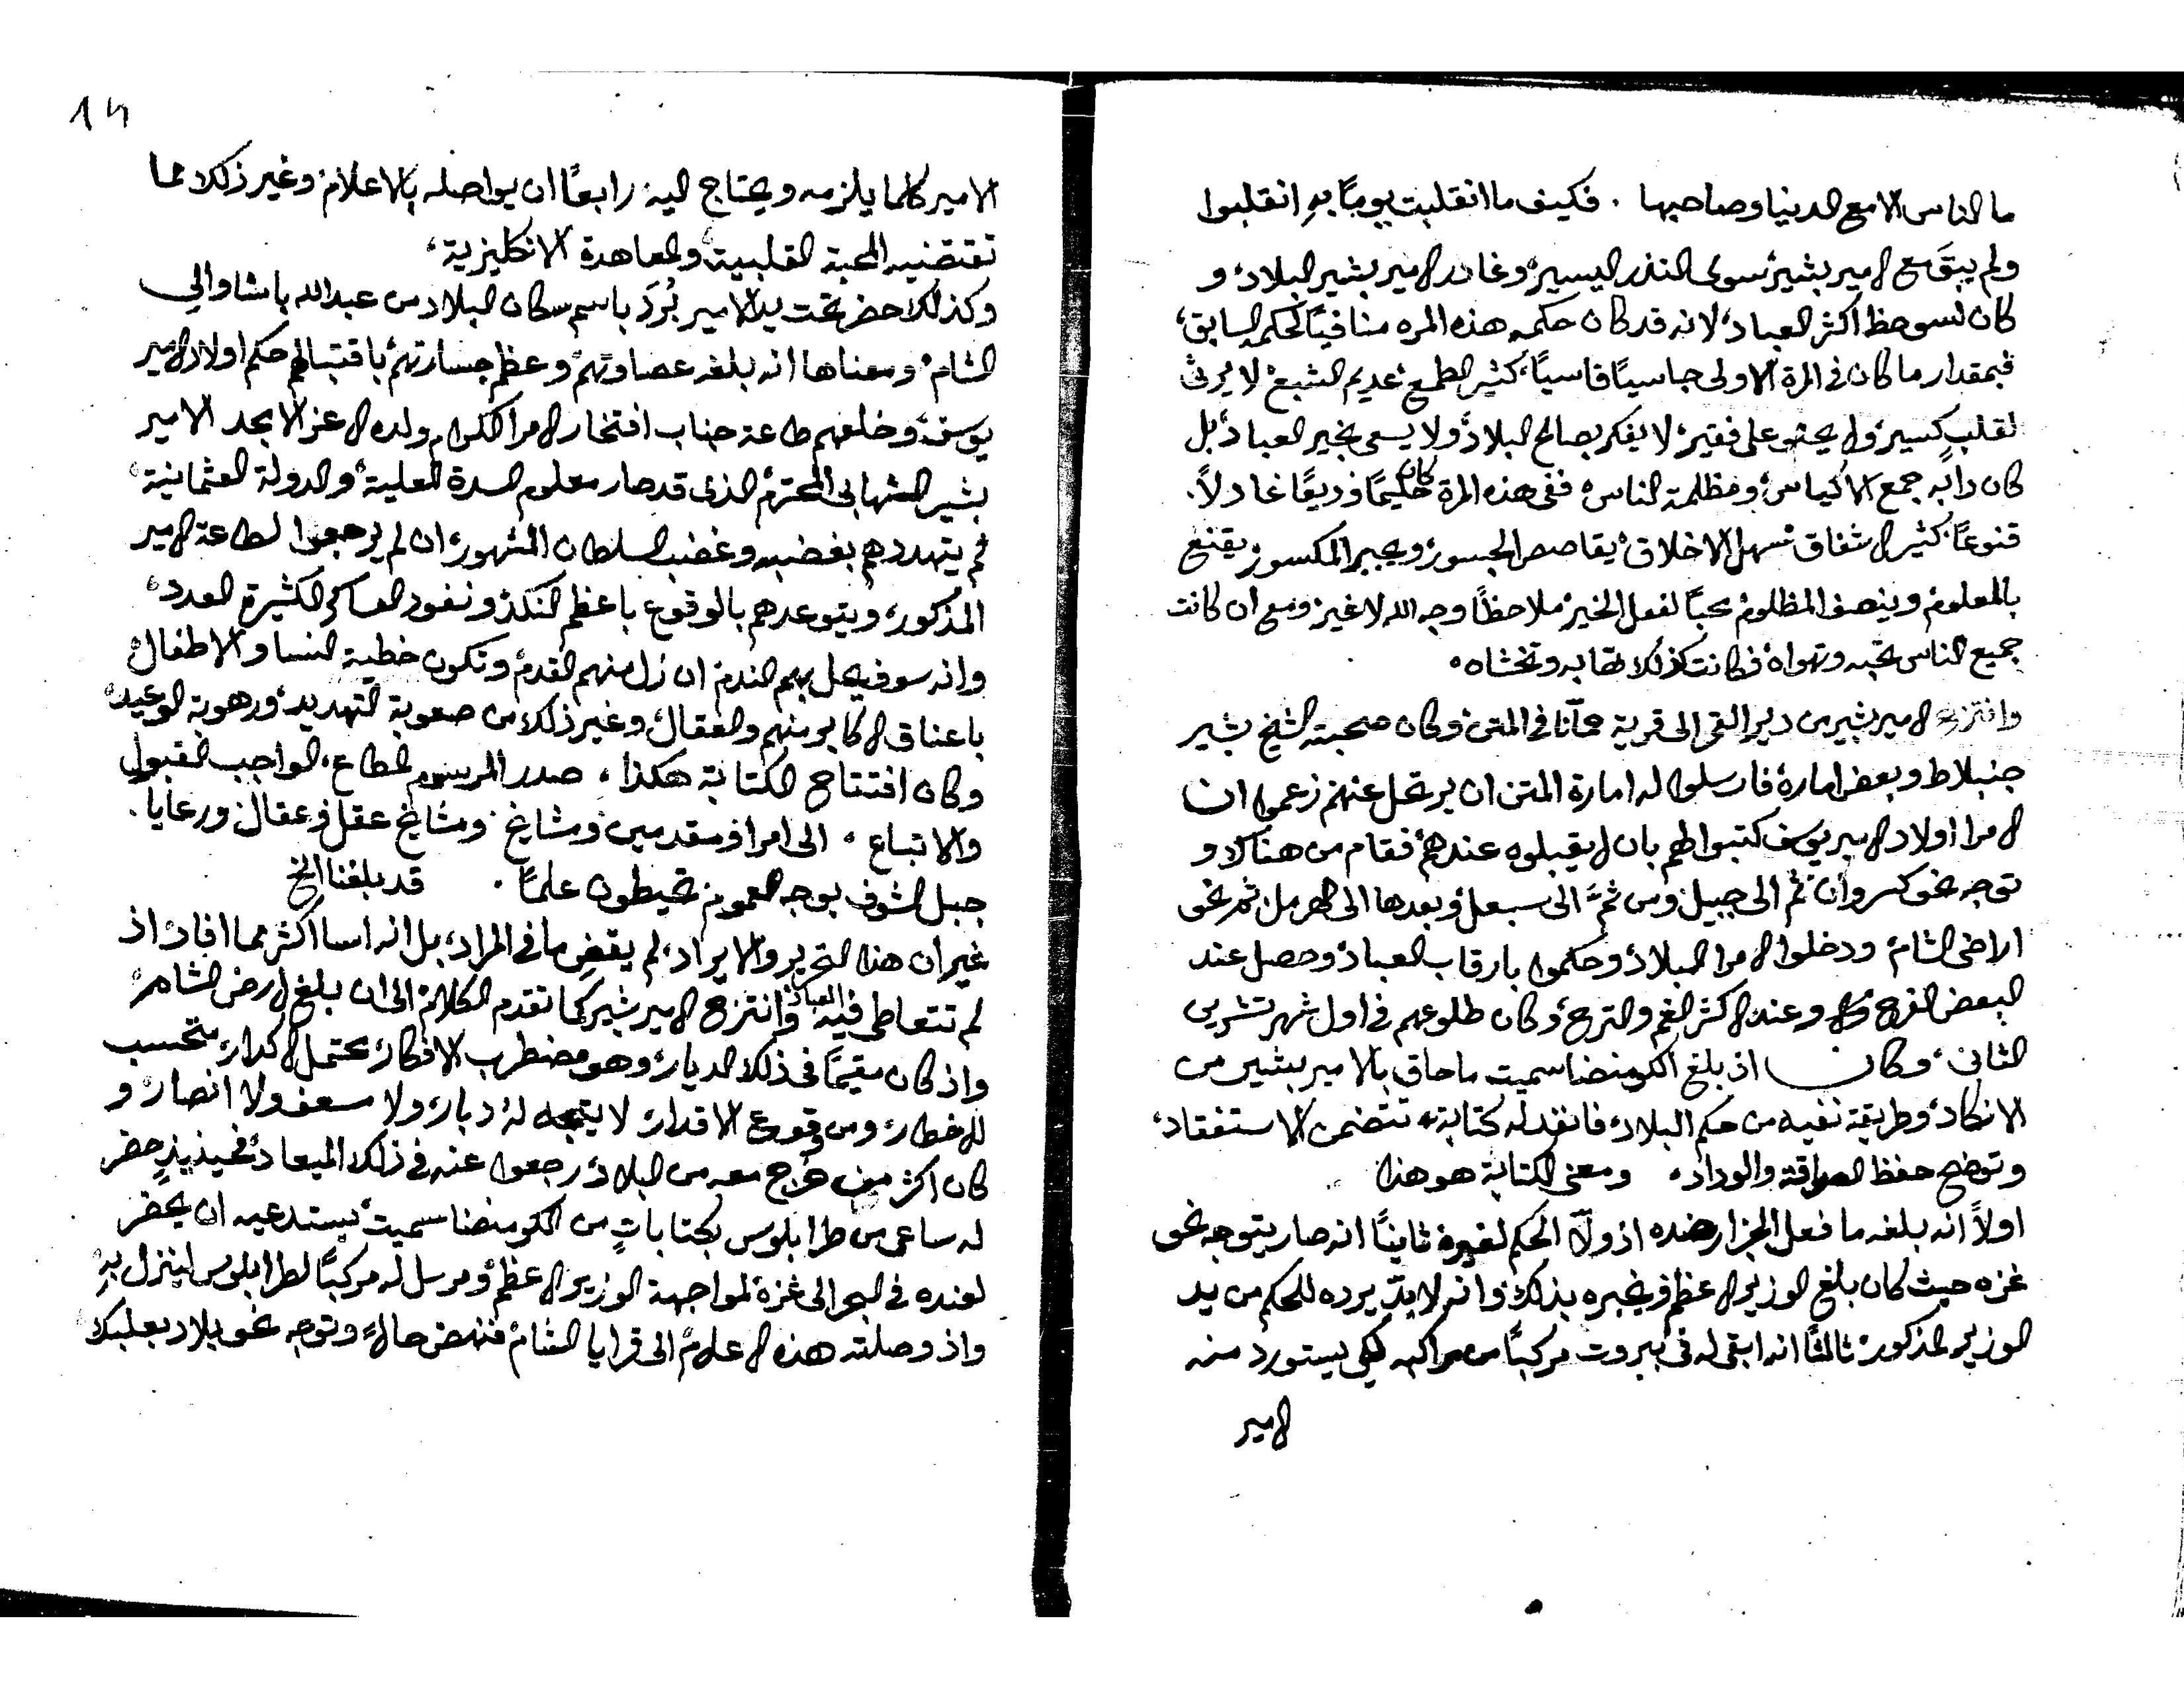 ما الناس الا مع الدنيا وصاحبها . فكيف ما انقلبت يوماً بهِ انقلبوا
ولم يبقَ مع الامير بشير سوى النذر اليسير وغادر الامير بشير البلاد و
كان لسو حظ اكثر العباد لانه قد كان حكمه هذه المره منافياً لحكمه السابق
فبمقدار ما كان في المرة الاولى جاسياً قاسياً كثير الطمع عديم الشبع لا يرثى
لقلبٍ كسير ولا يحنو على فقير لا يفكر بصالح البلاد ولا يسعى بخير العباد بل
كان دابه جمع الاكياس ومظلمة الناس ففي هذه المرة كان حليمًا وديعًا عادلاً.
قنوعاً كثير الاشفاق سهل الاخلاق يقاصص الجسور ويجبر المكسور يقنع
بالمعلوم وينصف المظلوم محباً لفعل الخير ملاحظاً وجه الله لا غير ومع ان كانت
جميع الناس تحبه وتهواه فكانت كذلك تهابه وتخشاه
وانتزح الامير بشير من دير القمر الى قرية حمّانا في المتن وكان صحبته الشيخ بشير
جنبلاط وبعض امارة فارسلوا له امارة المتن ان يرتحل عنهم زعموا ان
الامرا اولاد الامير يوسف كتبوا لهم بان لا يقبلوه عندهم فقام من هناك و
توجه نحو كسروان ثم الى جبيل ومن ثمَّ الى سبعل وبعدها الى الهرمل ثم نحو
اراضى الشام ودخلوا الامرا البلاد وحكموا بارقاب العباد وحصل عند
البعض الفرح وعند الاكثر الغم والترح وكان طلوعهم في اول شهر تشرين
الثانى وكان اذ بلغ الكومنضا سميت ما حاق بالامير بشير من
الانكاد وطريقة نفيه من حكم البلاد فانفد له كتابة تتضمن الاستفقاد
وتوضح حفظ الصداقة والوداد ومعنى الكتابة هو هذا
اولاً انه بلغه ما فعل الجزار ضده اذ ولّا الحكم لغيره ثانيًا انه صار يتوجه نحو
غزه حيث كان بلغ الوزير الاعظم ويخبره بذلك وانه لا بدّ يرده للحكم من يد
الوزير المذكور ثالثًا انه ابقى له في بيروت مركبًا من مراكبه لكي يستورد منه
الامير
14
الامير كلما يلزمه ويحتاج اليه رابعًا ان يواصله بالاعلام وغير ذلك مما
تقتضيه المحبة القلبية والمعاهدة الانكليزية
وكذلك حضر تحت يد الامير بُردَ باسم سكان البلاد من عبدالله باشا والي
الشام ومعناها انه بلغه عصاوتهم وعظم جسارتهم باقتبالهم حكم اولاد الامير
يوسف وخلعهم طاعة جناب افتخار الامرا الكرام ولده الاعز الامجد الامير
بشير الشهابى المحترم الذى قد صار معلوم السدة العلية والدولة العثمانية
ثم يتهددهم بغضبه وغضب السلطان المشهور ان لم يرجعوا لطاعة الامير
المذكور ويتوعدهم بالوقوع باعظم النكد ونفود العساكر الكثيرة العدد
وانه سوف يحل بهم الندم ان زل منهم القدم وتكون خطية النسا والاطفال
باعناق الاكابر منهم والعقال وغير ذلك من صعوبة التهديد ورهوبة الوعيد
وكان افتتاح الكتابة هكذا صدر المرسوم المطاع الواجب القبول
والاتباع الى امرا ومقدمين ومشايخ ومشايخ عقل وعقال ورعايا .
جبل الشوف بوجه العموم تحيطون علمًا . قد بلغنا الخ
غير ان هذا التحرير والايراد لم يقضِ ما في المراد بل انه اسا اكثر مما افاد اذ
لم تتعاطى فيه العباد وانتزح الامير بشير كما تقدم الكلام الى ان بلغ ارض الشام
واذ كان مقيمًا في ذلك الديار وهو مضطرب الافكار محتمل الاكدار متحسب
للاخطار ومن وقوع الاقدار لا يتجه له دبار ولا مسعف ولا انصار و
كان اكثر من خرج معه من البلاد رجعوا عنه في ذلك الميعاد فحينيذٍ حضر
له ساعى من طرابلوس بكتاباتٍ من الكومنضا سميت يستدعيه ان يحضر
لعنده في البحر الى غزة لمواجهة الوزير الاعظم ومرسل له مركبًا لطرابلوس لينزل بهِ
واذ وصلته هذه الاعلام الى قرايا الشام فنهض حالاً وتوجه نحو بلاد بعلبك